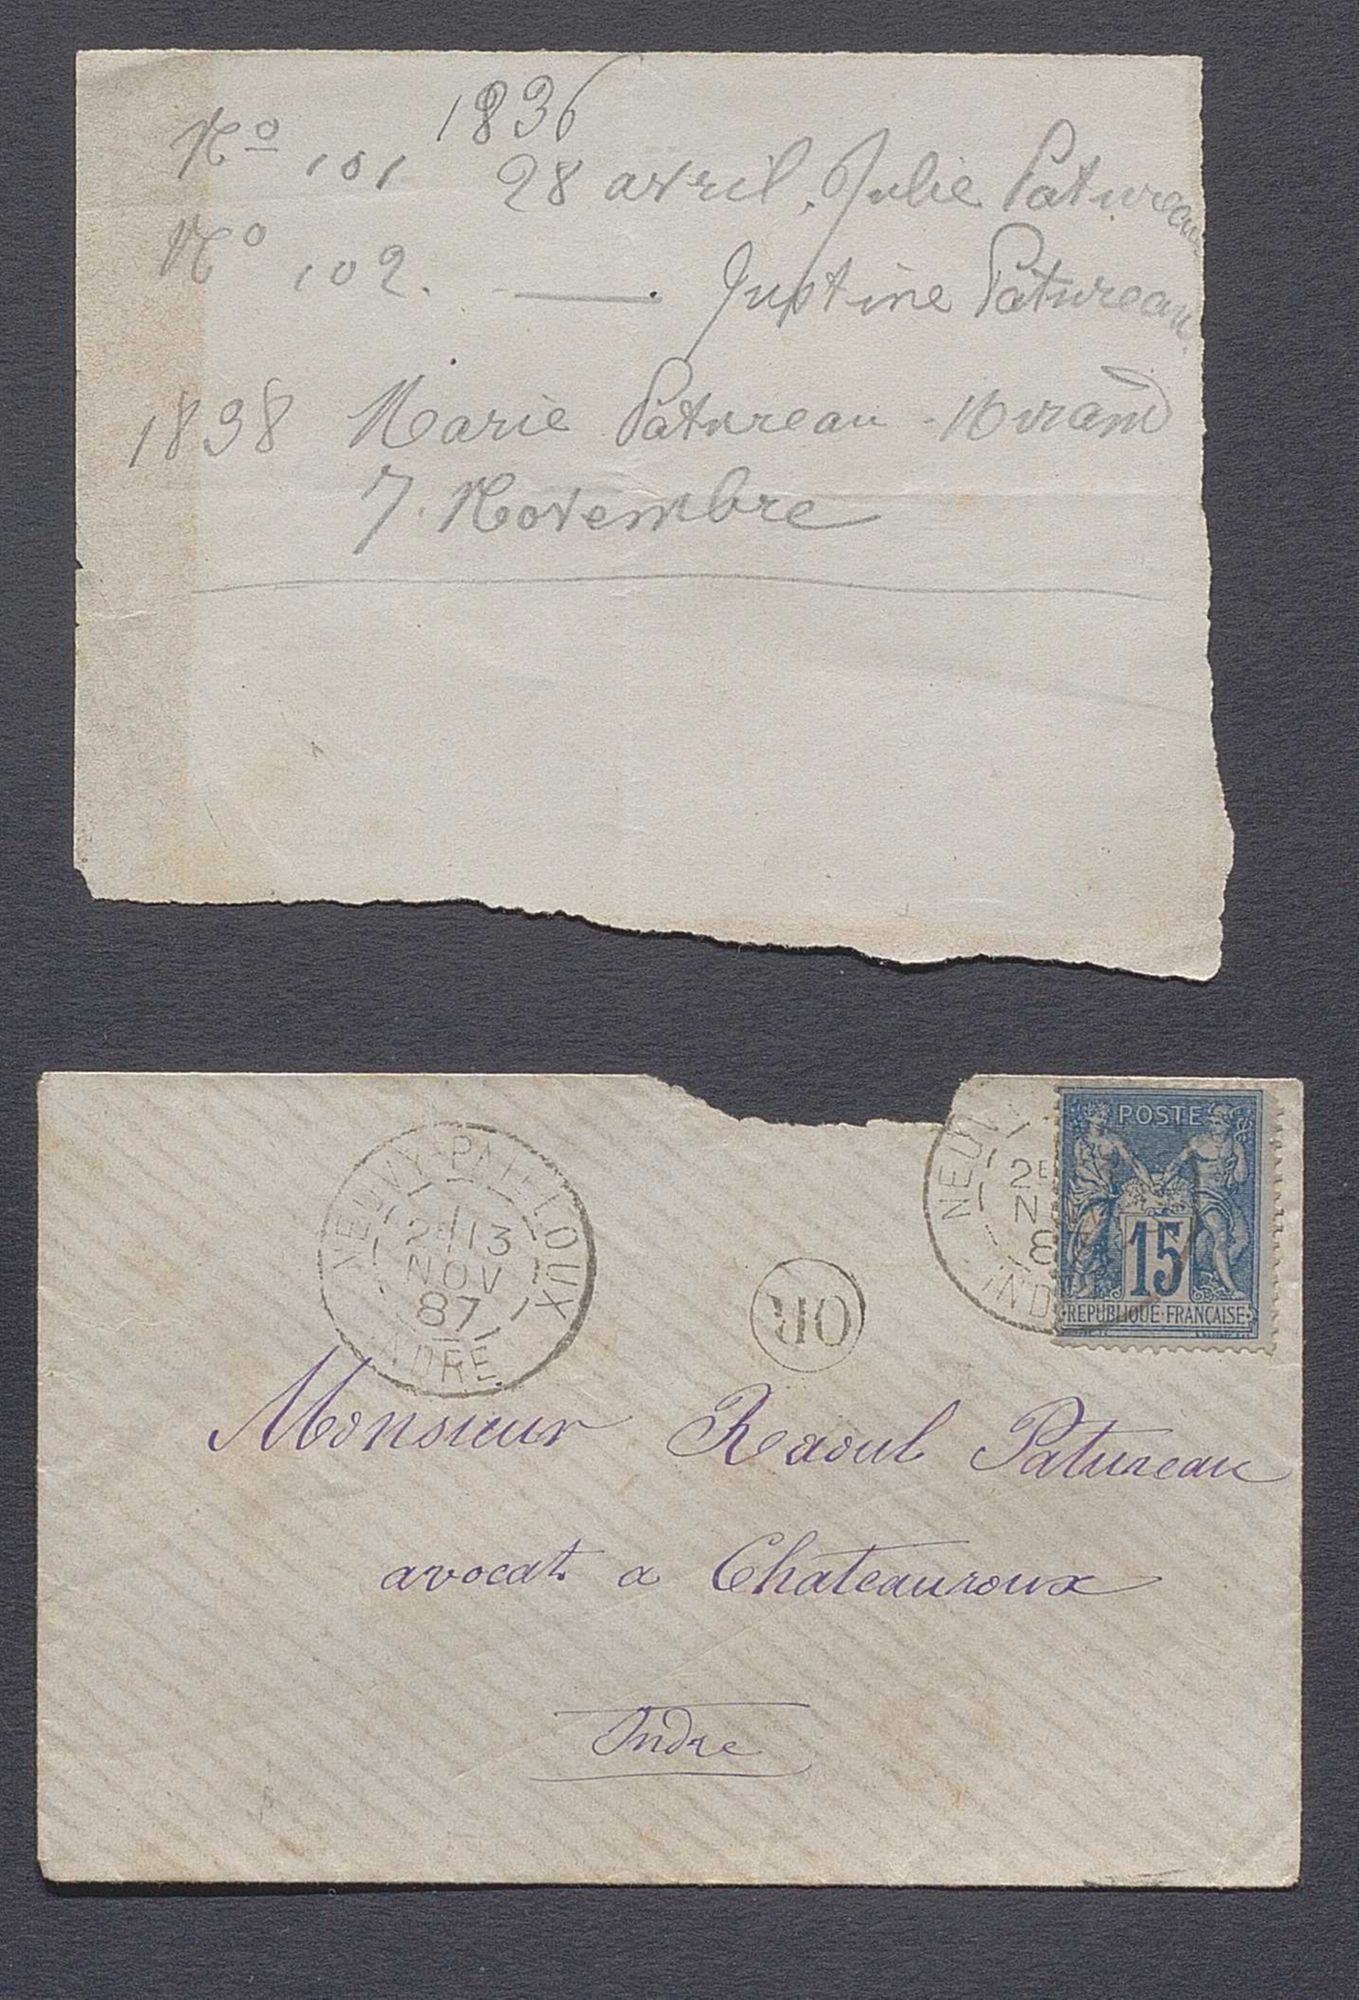 1836
No 101 28 avril. Julie Patureau
No 102. —— . Justine Patureau.
1838 Marie Patureau-Mirand
7. Novembre
NEUVY-PAILLOUX
2E 13
NOV
87
INDRE
OR
NEUV
2E
N
8
IND
POSTE
15
REPUBLIQUE FRANÇAISE
Monsieur Raoul Patureau
avocat a Chateauroux
Indre